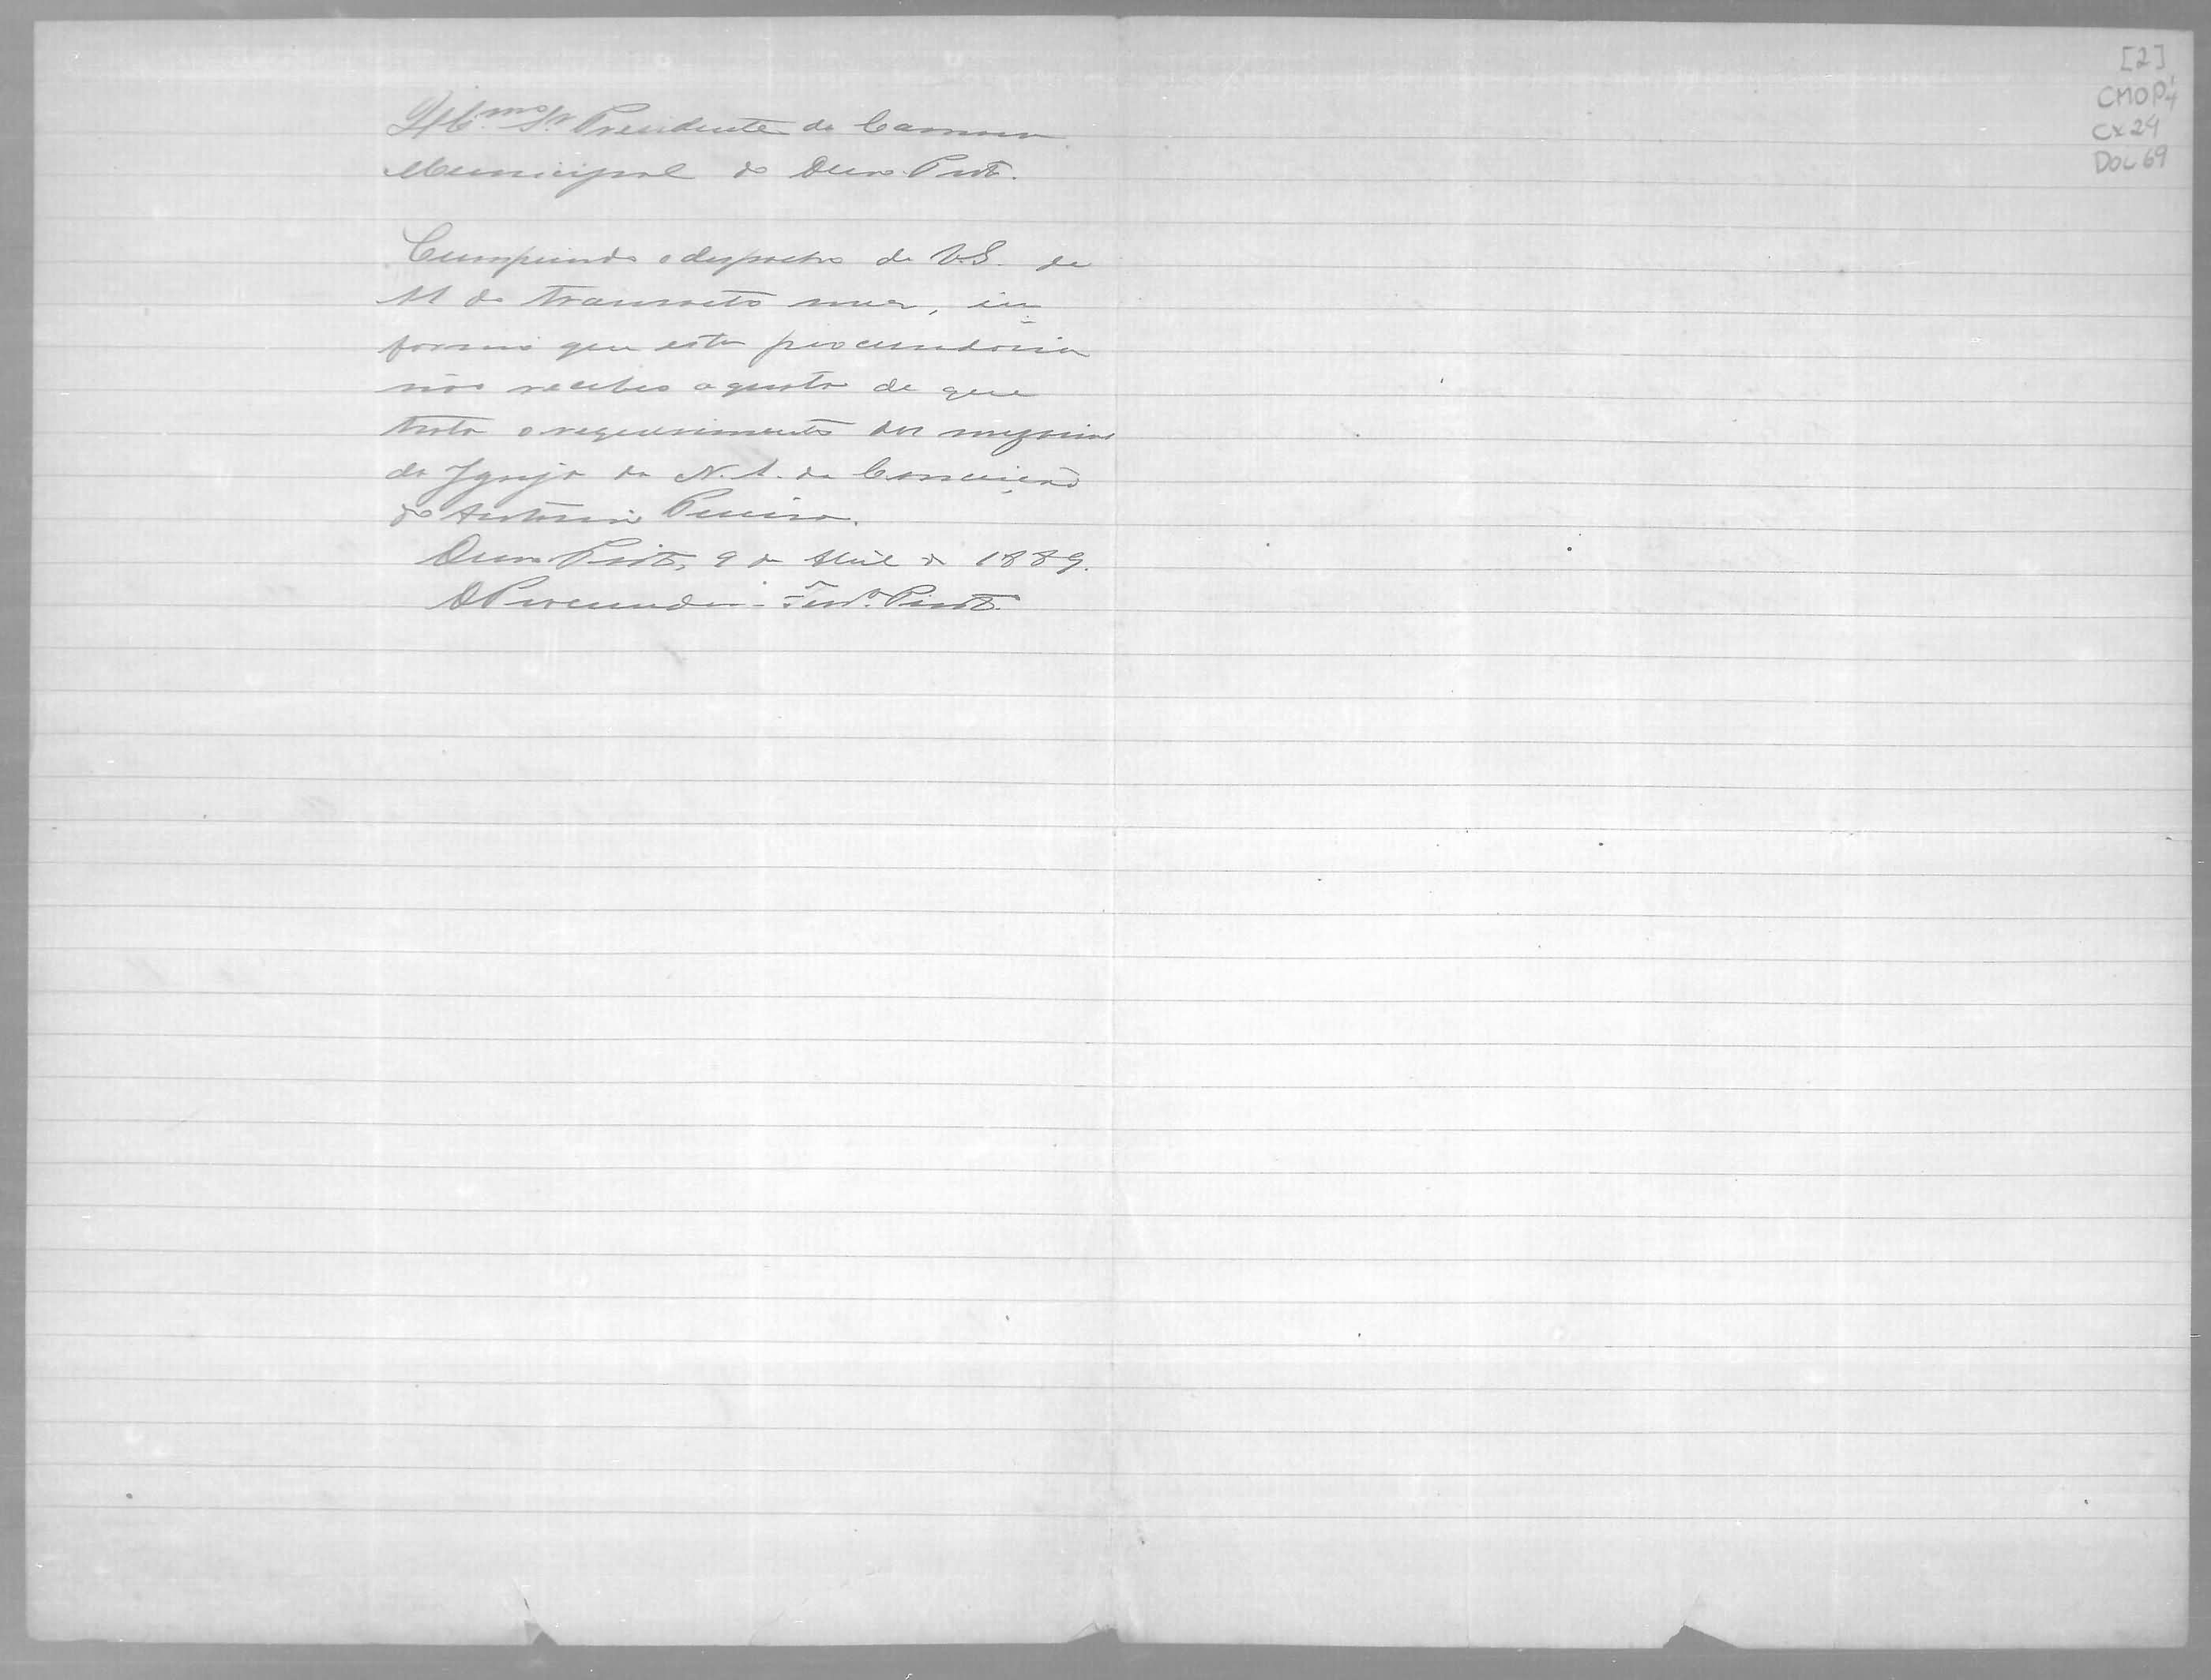 [2]
CMOP
Cx 24
Doc 69
Ill.mo Sr Presidente da Camara
Municipal do Ouro Preto.
Cumprindo o despacho de V.S. de
11 do transacto mez, in
formo que esta procuradoria
não recebeo a quota de que
trata o requerimento dos mezarios
da Igreja da N. S. da Conceição
do Antonio Pereira.
Ouro Preto, 9 de Abril de 1889.
O Procurador